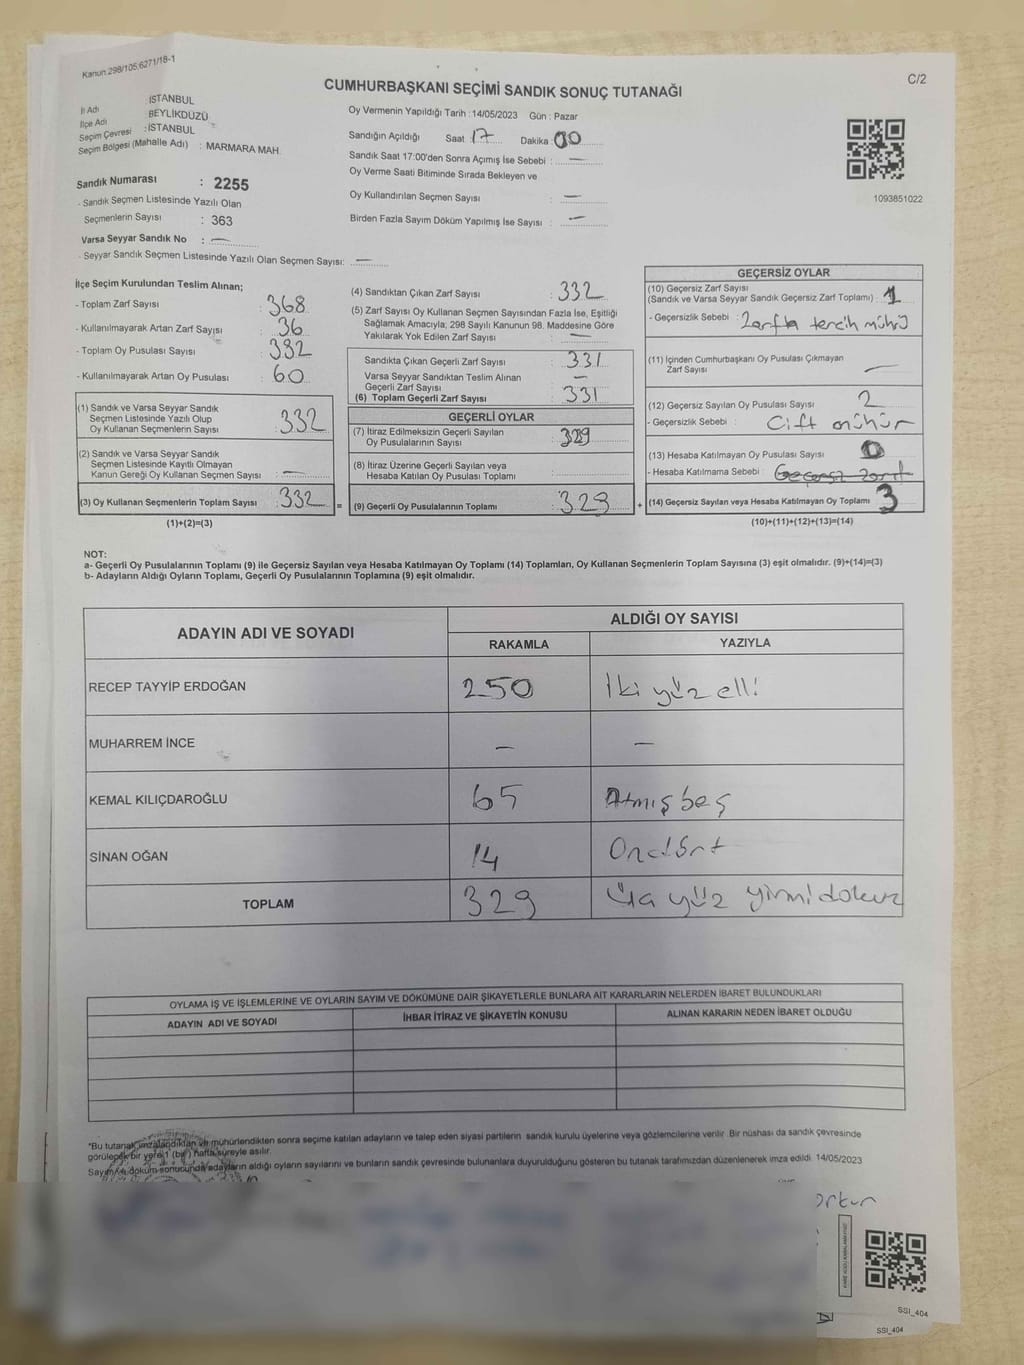 Kanun 298/105:6271/18-1
C/2
CUMHURBAŞKANI SEÇİMİ SANDIK SONUÇ TUTANAĞI
İl Adı : İSTANBUL
İlçe Adı BEYLİKDÜZÜ
Seçim Çevresi : İSTANBUL
Seçim Bölgesi (Mahalle Adı) : MARMARA MAH.
Sandık Numarası : 2255
- Sandık Seçmen Listesinde Yazılı Olan
Seçmenlerin Sayısı : 363
Varsa Seyyar Sandık No : —
- Seyyar Sandık Seçmen Listesinde Yazılı Olan Seçmen Sayısı: —
Oy Vermenin Yapıldığı Tarih : 14/05/2023 Gün : Pazar
Sandığın Açıldığı Saat 17 Dakika 00
Sandık Saat 17:00'den Sonra Açımış İse Sebebi : —
Oy Verme Saati Bitiminde Sırada Bekleyen ve
Oy Kullandırılan Seçmen Sayısı : —
Birden Fazla Sayım Döküm Yapılmış İse Sayısı : —
1093851022
İlçe Seçim Kurulundan Teslim Alınan;
- Toplam Zarf Sayısı : 368
- Kullanılmayarak Artan Zarf Sayısı : 36
- Toplam Oy Pusulası Sayısı : 392
- Kullanılmayarak Artan Oy Pusulası : 60
(1) Sandık ve Varsa Seyyar Sandık
Seçmen Listesinde Yazılı Olup
Oy Kullanan Seçmenlerin Sayısı : 332
(2) Sandık ve Varsa Seyyar Sandık
Seçmen Listesinde Kayıtlı Olmayan
Kanun Gereği Oy Kullanan Seçmen Sayısı : —
(3) Oy Kullanan Seçmenlerin Toplam Sayısı : 332 =
(1)+(2)=(3)
(4) Sandıktan Çıkan Zarf Sayısı : 332
(5) Zarf Sayısı Oy Kullanan Seçmen Sayısından Fazla İse, Eşitliği
Sağlamak Amacıyla, 298 Sayılı Kanunun 98. Maddesine Göre
Yakılarak Yok Edilen Zarf Sayısı : —
Sandıkta Çıkan Geçerli Zarf Sayısı : 331
Varsa Seyyar Sandıktan Teslim Alınan
Geçerli Zarf Sayısı : —
(6) Toplam Geçerli Zarf Sayısı : 331
GEÇERLİ OYLAR
(7) İtiraz Edilmeksizin Geçerli Sayılan
Oy Pusulalarının Sayısı : 329
(8) İtiraz Üzerine Geçerli Sayılan veya
Hesaba Katılan Oy Pusulası Toplamı
(9) Geçerli Oy Pusulalarının Toplamı : 329 +
GEÇERSİZ OYLAR
(10) Geçersiz Zarf Sayısı
(Sandık ve Varsa Seyyar Sandık Geçersiz Zarf Toplamı) : 1
- Geçersizlik Sebebi : Zarfta tercih mührü
(11) İçinden Cumhurbaşkanı Oy Pusulası Çıkmayan
Zarf Sayısı —
(12) Geçersiz Sayılan Oy Pusulası Sayısı : 2
- Geçersizlik Sebebi : Çift mühür
(13) Hesaba Katılmayan Oy Pusulası Sayısı : 0
- Hesaba Katılmama Sebebi : Geçersiz zarf
(14) Geçersiz Sayılan veya Hesaba Katılmayan Oy Toplamı : 3
(10)+(11)+(12)+(13)=(14)
NOT:
a- Geçerli Oy Pusulalarının Toplamı (9) ile Geçersiz Sayılan veya Hesaba Katılmayan Oy Toplamı (14) Toplamları, Oy Kullanan Seçmenlerin Toplam Sayısına (3) eşit olmalıdır. (9)+(14)=(3)
b- Adayların Aldığı Oyların Toplamı, Geçerli Oy Pusulalarının Toplamına (9) eşit olmalıdır.
ADAYIN ADI VE SOYADI ALDIĞI OY SAYISI
RAKAMLA YAZIYLA
RECEP TAYYİP ERDOĞAN 250 İki yüz elli
MUHARREM İNCE — —
KEMAL KILIÇDAROĞLU 65 Atmış beş
SİNAN OĞAN 14 Ondört
TOPLAM 329 Üç yüz yirmi dokuz
OYLAMA İŞ VE İŞLEMLERİNE VE OYLARIN SAYIM VE DÖKÜMÜNE DAİR ŞİKAYETLERLE BUNLARA AİT KARARLARIN NELERDEN İBARET BULUNDUKLARI
ADAYIN ADI VE SOYADI İHBAR İTİRAZ VE ŞİKAYETİN KONUSU ALINAN KARARIN NEDEN İBARET OLDUĞU
*Bu tutanak imzalandıktan ve mühürlendikten sonra seçime katılan adayların ve talep eden siyasi partilerin sandık kurulu üyelerine veya gözlemcilerine verilir. Bir nüshası da sandık çevresinde
görülecek bir yere 1 (bir) hafta süreyle asılır.
Sayım ve döküm sonucunda adayların aldığı oyların sayılarını ve bunların sandık çevresinde bulunanlara duyurulduğunu gösteren bu tutanak tarafımızdan düzenlenerek imza edildi. 14/05/2023
SSI_404
SSI_404